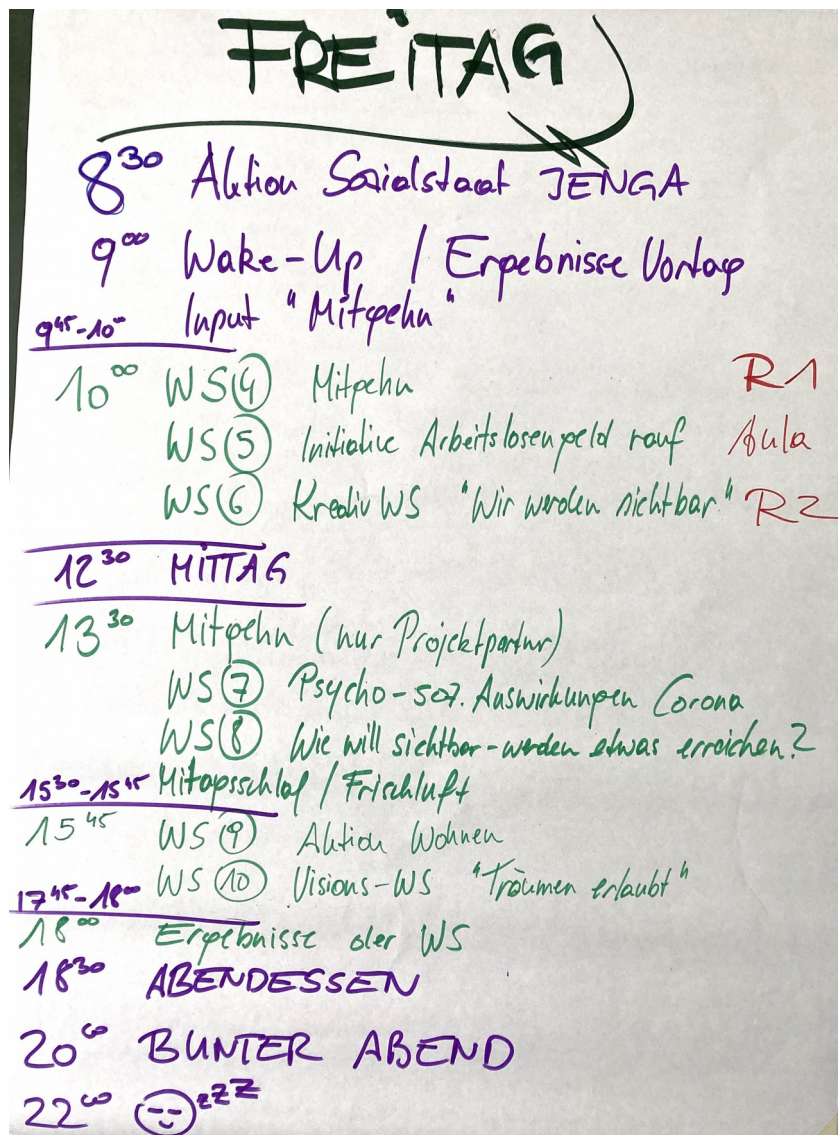 FREITAG
8³⁰ Aktion Sozialstaat JENGA
9⁰⁰ Wake-Up / Ergebnisse Vortag
Input "Mitgehn"
9⁴⁵-10⁰⁰
10⁰⁰ WS ④ Mitgehn R1
WS ⑤ Initiative Arbeitslosengeld rauf Aula
WS ⑥ Kreativ WS "Wir werden sichtbar" R2
12³⁰ MITTAG
13³⁰ Mitgehn (nur Projektpartner)
WS ⑦ Psycho-soz. Auswirkungen Corona
WS ⑧ Wie will sichtbar-werden etwas erreichen?
15³⁰-15⁴⁵ Mitagsschlaf / Frischluft
15⁴⁵ WS ⑨ Aktion Wohnen
WS ⑩ Visions-WS "Träumen erlaubt"
17⁴⁵-18⁰⁰
18⁰⁰ Ergebnisse der WS
18³⁰ ABENDESSEN
20⁰⁰ BUNTER ABEND
22⁰⁰ zzz